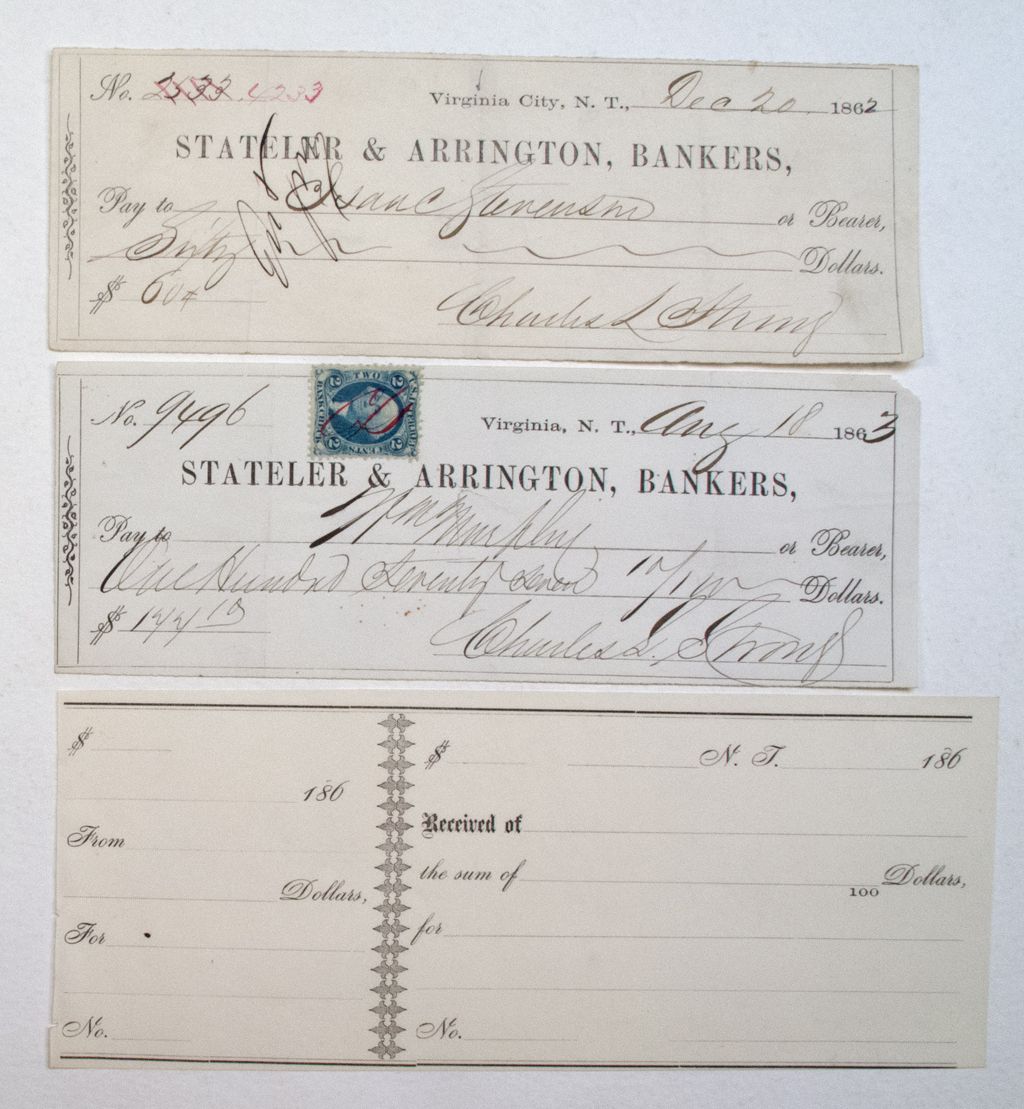 No. 2333 4233
Virginia City, N. T., Dec 20 1862
STATELER & ARRINGTON, BANKERS,
Pay to Isaac Stevenson or Bearer,
Sixty Dollars.
$ 60
Charles L Strong
No. 9496
TWO
2 2
2 2
CENTS
Virginia, N. T., Aug 18 1863
STATELER & ARRINGTON, BANKERS,
Pay to Wm Murphy or Bearer,
One Hundred Seventy Seven 10/100 Dollars.
$ 177 10
Charles L. Strong
$
186
From
Dollars,
For
No.
$ N. T. 186
Received of
the sum of 100 Dollars,
for
No.